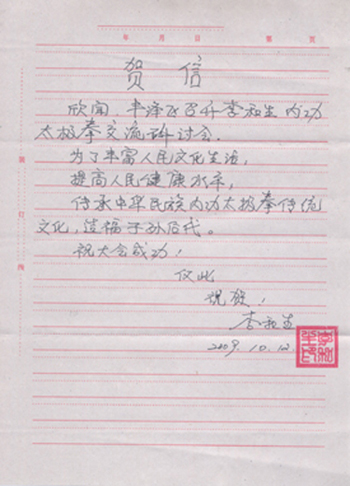 年 月 日 第 页
贺 信
欣闻 丰泽区召开李和生内功
太极拳交流研讨会.
为了丰富人民文化生活,
提高人民健康水平,
传承中华民族内功太极拳传统
文化,造福子孙后代。
祝大会成功!
仅此
祝贺!
李和生
2009. 10. 12